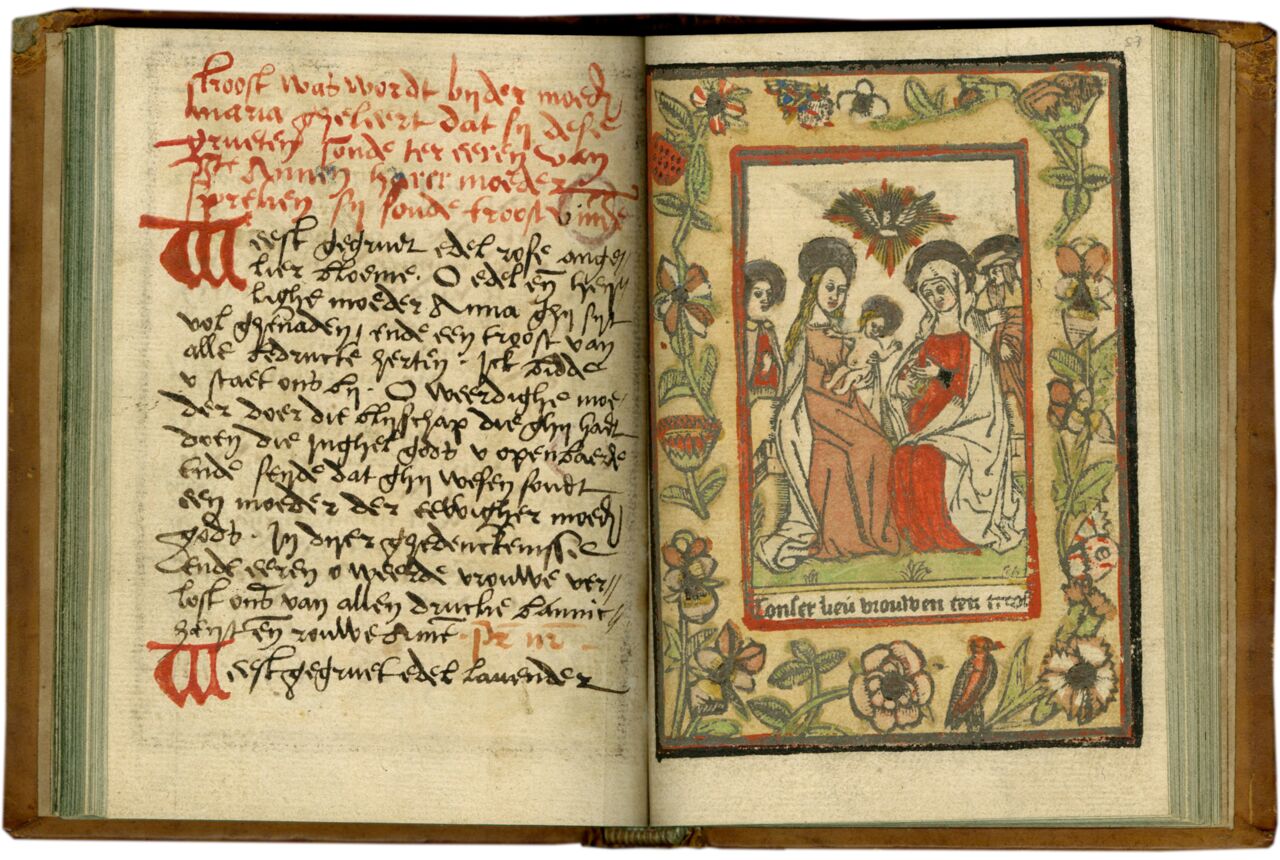 troost was wordt bijder moed͛
maria gheleert dat sij dese
grueten soude ter eeren van
Sᵗᵉ Annen harer moeder
spreken sij soude troost vinde
Weest gegruet edel rose ange//
lier bloeme. O edel en̄ hey//
lighe moeder Anna ghij sijt
vol ghenaden / ende een troost van
alle bedructe herten. Ick bidde
v staet ons bij. O weerdighe moe//
der doer die blijschap die ghij hadt
doen die Inghel gods v openbaerde
Ende seyde dat ghij wesen soudt
een moeder der eewigher moed͛
gods. In dijer ghedenckenisse
ende eeren o weerde vrouwe ver//
lost ons van allen drucke
en̄ rouwe Amē pr̄ nr̄
Weest gegruet edel lauender
87
Tonser lieu vrouwen ten troost